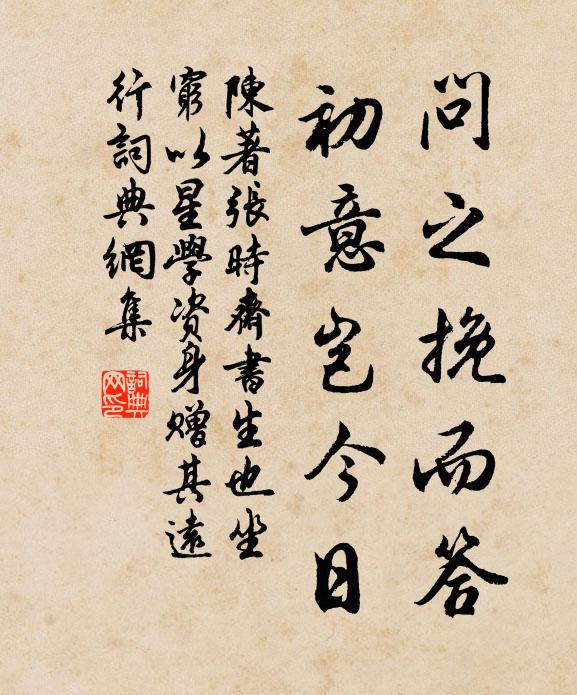 問之挽而答
初意豈今日
陳著張時齋書生也坐
窮以星學資身贈其遠
行詞典網集
詞典
网印